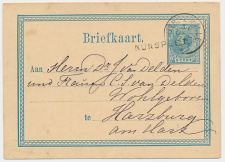 Briefkaart.
NUNSP
Aan Heeren Dr. J. van Delden
und Frau C. S. van Delden
Wohlgeboren
te Harzburg
am Harz